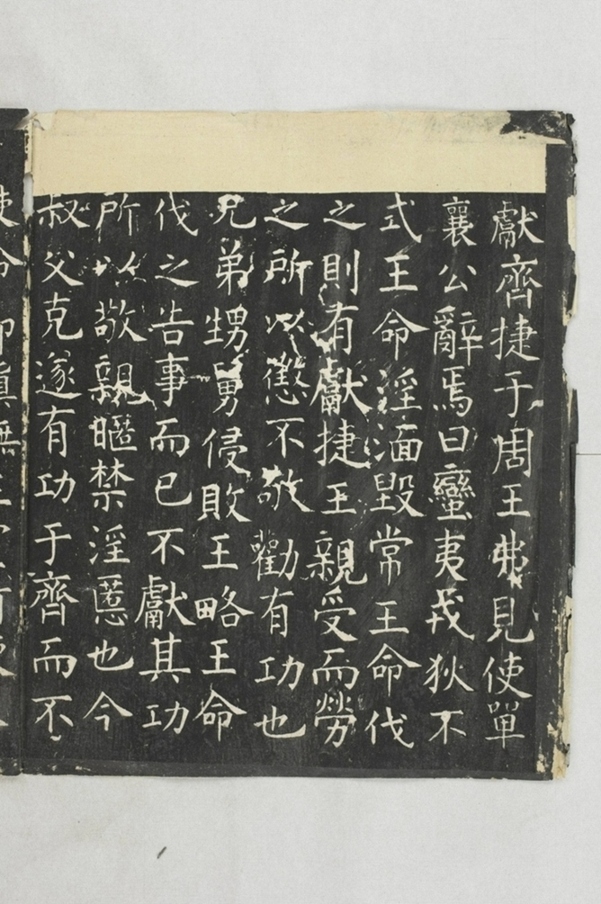 獻齊捷于周王弗見使單
襄公辭焉曰蠻夷戎狄不
式王命淫湎毀常王命伐
之則有獻捷王親受而勞
之所以懲不敬勸有功也
兄弟甥舅侵敗王略王命
伐之告事而已不獻其功
所以敬親暱禁淫慝也今
叔父克遂有功于齊而不